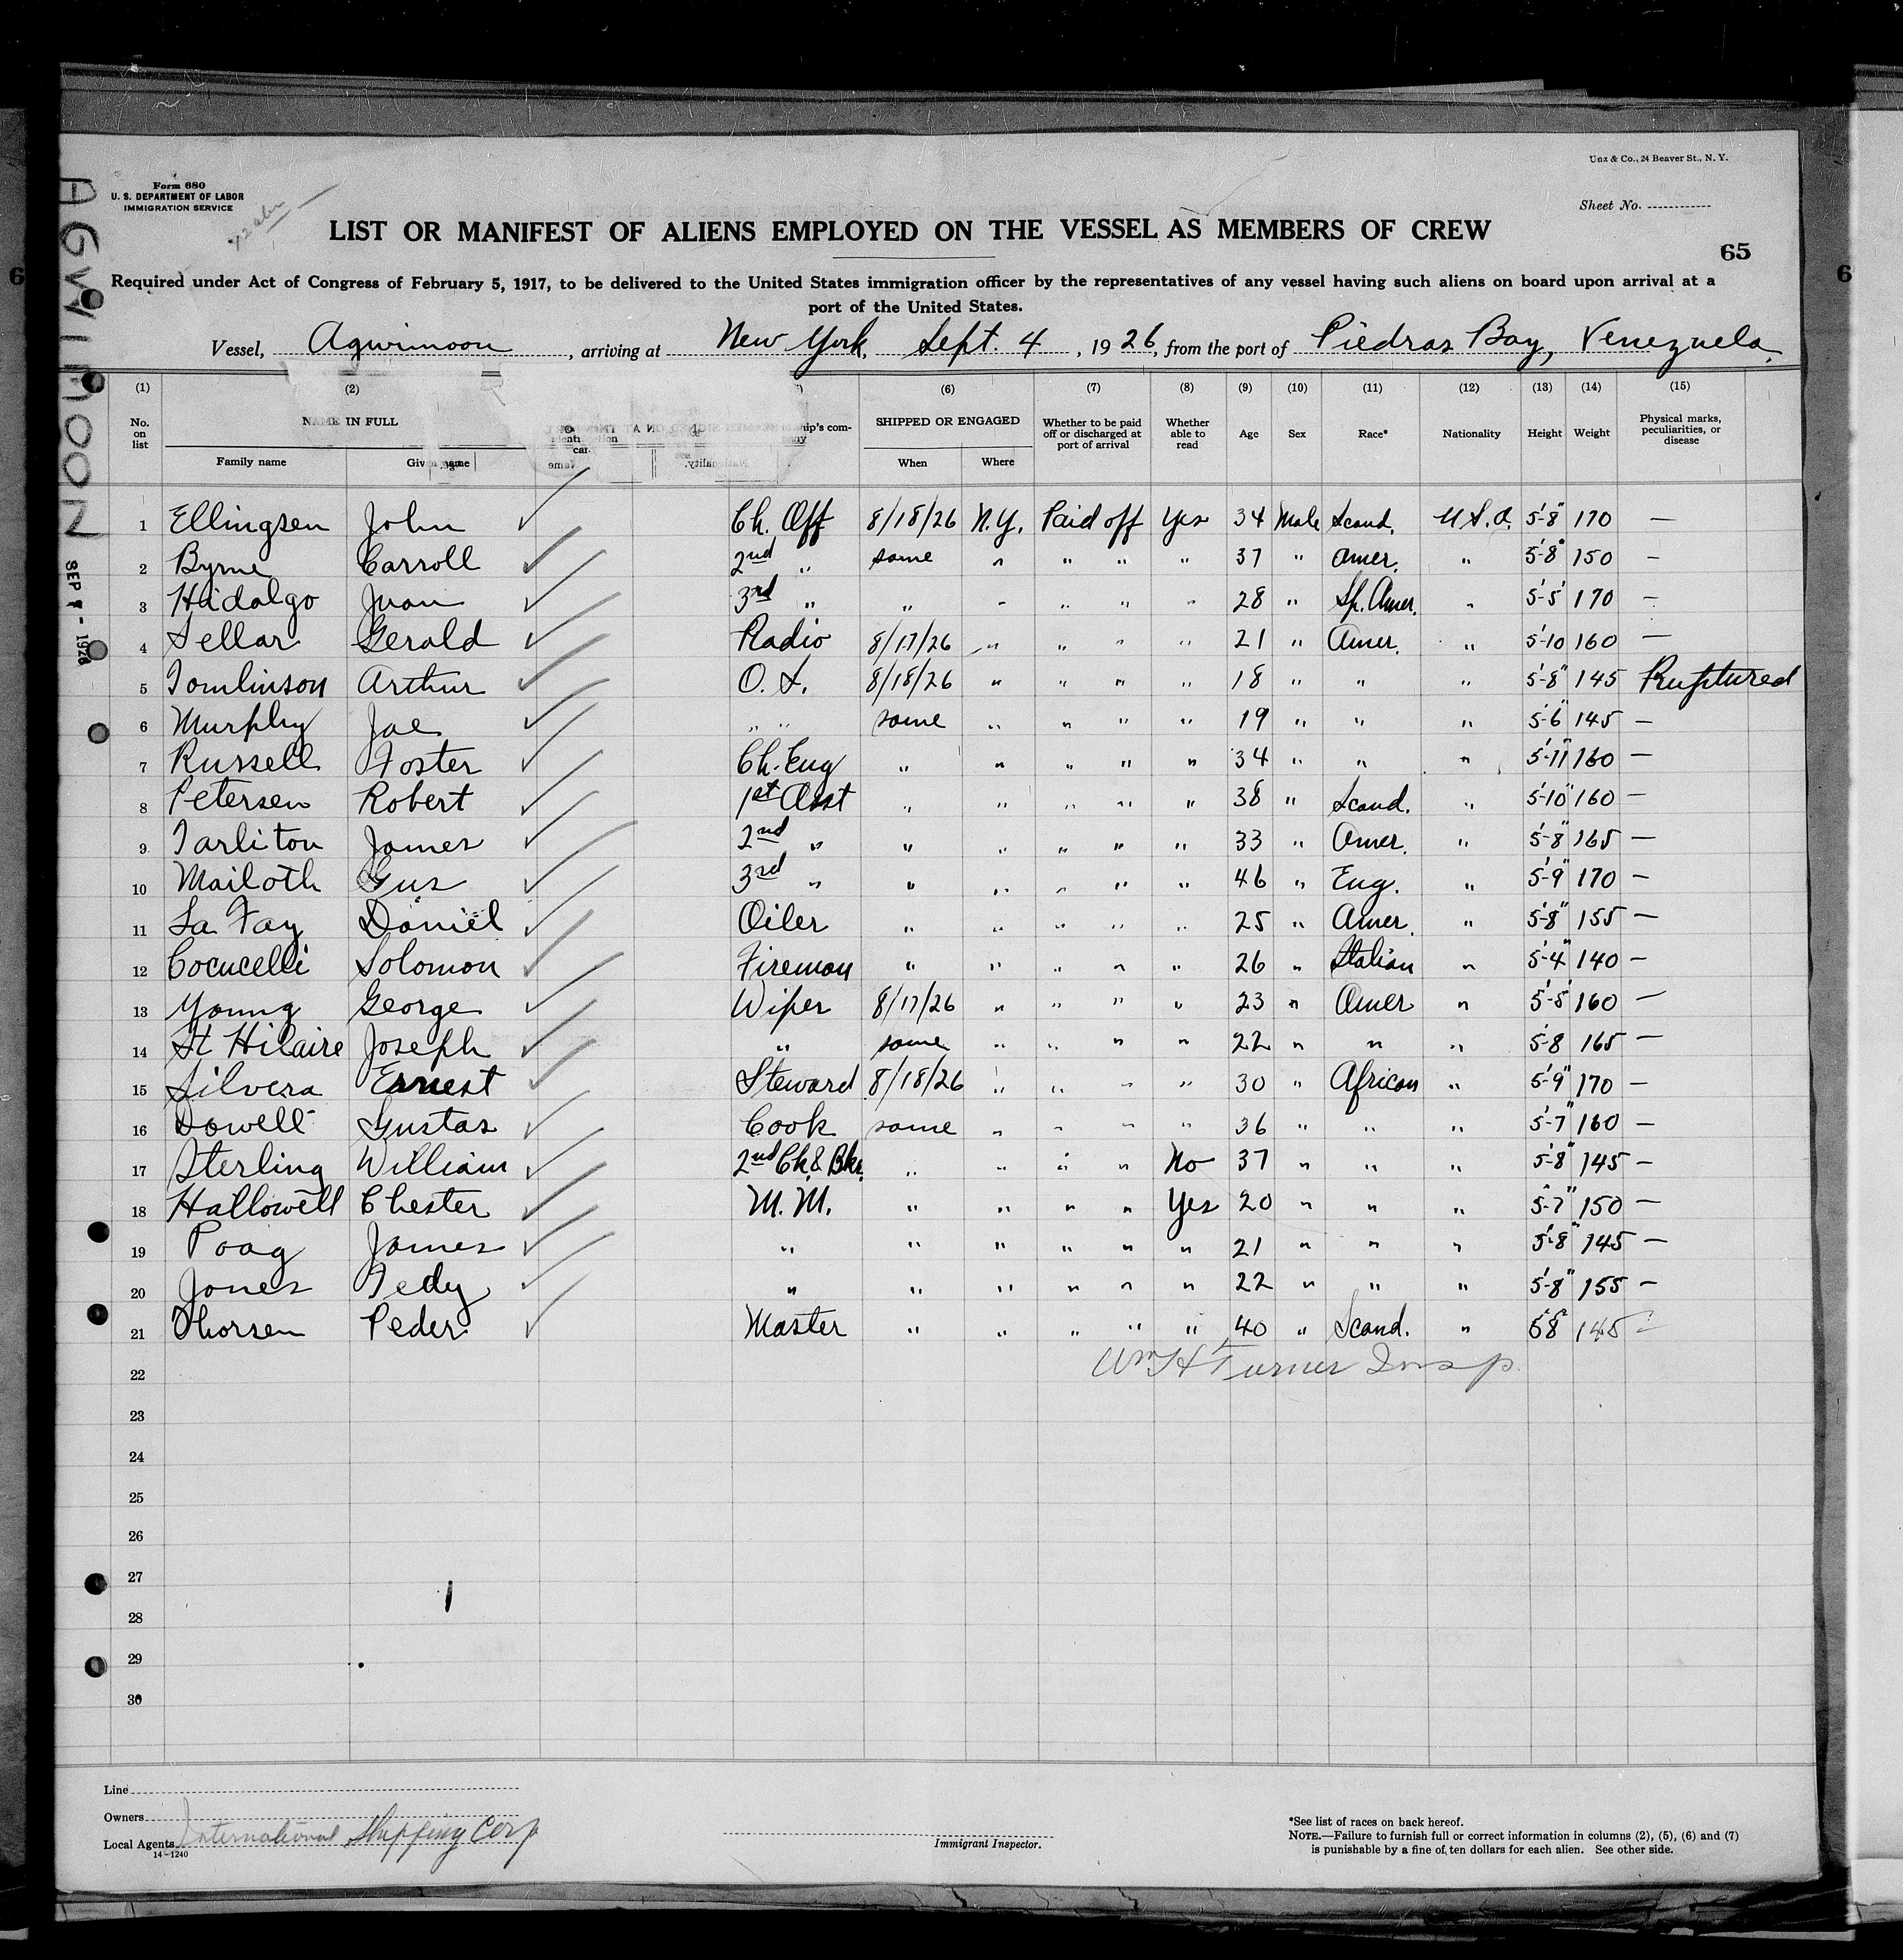 Unz & Co., 24 Beaver St., N. Y.
Form 680
U. S. DEPARTMENT OF LABOR
IMMIGRATION SERVICE
Sheet No.
LIST OR MANIFEST OF ALIENS EMPLOYED ON THE VESSEL AS MEMBERS OF CREW
65
Required under Act of Congress of February 5, 1917, to be delivered to the United States immigration officer by the representatives of any vessel having such aliens on board upon arrival at a
port of the United States.
Vessel, Agwimoon, arriving at New York, Sept. 4, 1926, from the port of Piedras Bay, Venezuela.
AGWIMOON SEP - 1926
(1) (2) (6) (7) (8) (9) (10) (11) (12) (13) (14) (15)
No. on list NAME IN FULL Family name Given name ship's com- SHIPPED OR ENGAGED When Where Whether to be paid off or discharged at port of arrival Whether able to read Age Sex Race* Nationality Height Weight Physical marks, peculiarities, or disease
1 Ellingsen John Ch. Off 8/18/26 N.Y. Paid off Yes 34 Male Scand. U.S.A. 5'-8" 170 —
2 Byrne Carroll 2nd " same " " " " 37 " Amer. " 5'-8" 150 —
3 Hidalgo Juan 3rd " " " " " " 28 " Sp. Amer. " 5'-5' 170 —
4 Sellar Gerald Radio 8/17/26 " " " " 21 " Amer. " 5'-10 160 —
5 Tomlinson Arthur O.S. 8/18/26 " " " " 18 " " " 5'-8" 145 Ruptured
6 Murphy Joe " " same " " " " 19 " " " 5'-6" 145 —
7 Russell Foster Ch. Eng " " " " " 34 " " " 5'-11" 160 —
8 Petersen Robert 1st Asst " " " " " 38 " Scand. " 5'-10" 160 —
9 Tarliton James 2nd " " " " " " 33 " Amer. " 5'-8" 165 —
10 Mailoth Gus 3rd " " " " " " 46 " Eng. " 5'-9" 170 —
11 La Fay Daniel Oiler " " " " " 25 " Amer. " 5'-8" 155 —
12 Cocucelli Solomon Fireman " " " " " 26 " Italian " 5'-4" 140 —
13 Young George Wiper 8/17/26 " " " " 23 " Amer " 5'-5' 160 —
14 St Hilaire Joseph " same " " " " 22 " " " 5'-8 165 —
15 Silvera Ernest Steward 8/18/26 " " " " 30 " African " 5'-9" 170 —
16 Dowell Gustas Cook same " " " " 36 " " " 5'-7" 160 —
17 Sterling William 2nd Ck & Bkr. " " " " No 37 " " " 5'-8" 145 —
18 Hallowell Chester M.M. " " " " Yes 20 " " " 5'-7" 150 —
19 Poag James " " " " " " 21 " " " 5'-8" 145 —
20 Jones Tedy " " " " " " 22 " " " 5'-8" 155 —
21 Thorsen Peder Master " " " " " 40 " Scand. " 5'8" 145 —
22 Wm H Turner Insp.
23
24
25
26
27
28
29
30
Line
Owners
Local Agents International Shipping Corp
14-1240
Immigrant Inspector.
*See list of races on back hereof.
NOTE.—Failure to furnish full or correct information in columns (2), (5), (6) and (7)
is punishable by a fine of ten dollars for each alien. See other side.